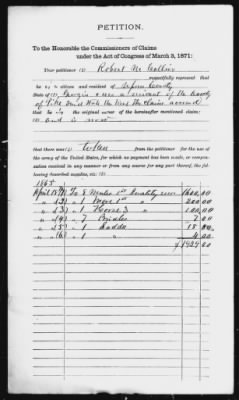 PETITION.
To the Honorable the Commissioners of Claims
under the Act of Congress of March 3, 1871:
Your petitioner (1) Robert M
respectfully represent that
he (2) a citizen and resident of County
State of (3) Georgia & was a resident of the County
of Pike said State when the Claims accrued
that he (4) the original owner of the hereinafter mentioned claim:
(5) and is now
that there was (6) taken from the petitioner for the use of the
army of the United States, for which no payment has been made, or compen-
sation received in any manner or from any source for any part thereof, the following
described supplies, etc. (7)
1865
April (1) To 8 Mules 1st quality 1600.00
" (2) " 1 Mare 1st " 200.00
" (3) " 1 Horse 3 " 100.00
" (4) " 7 Bridles 7.00
" (5) " 1 Saddle 18.00
" (6) " 1 " 4.00
$1929.00